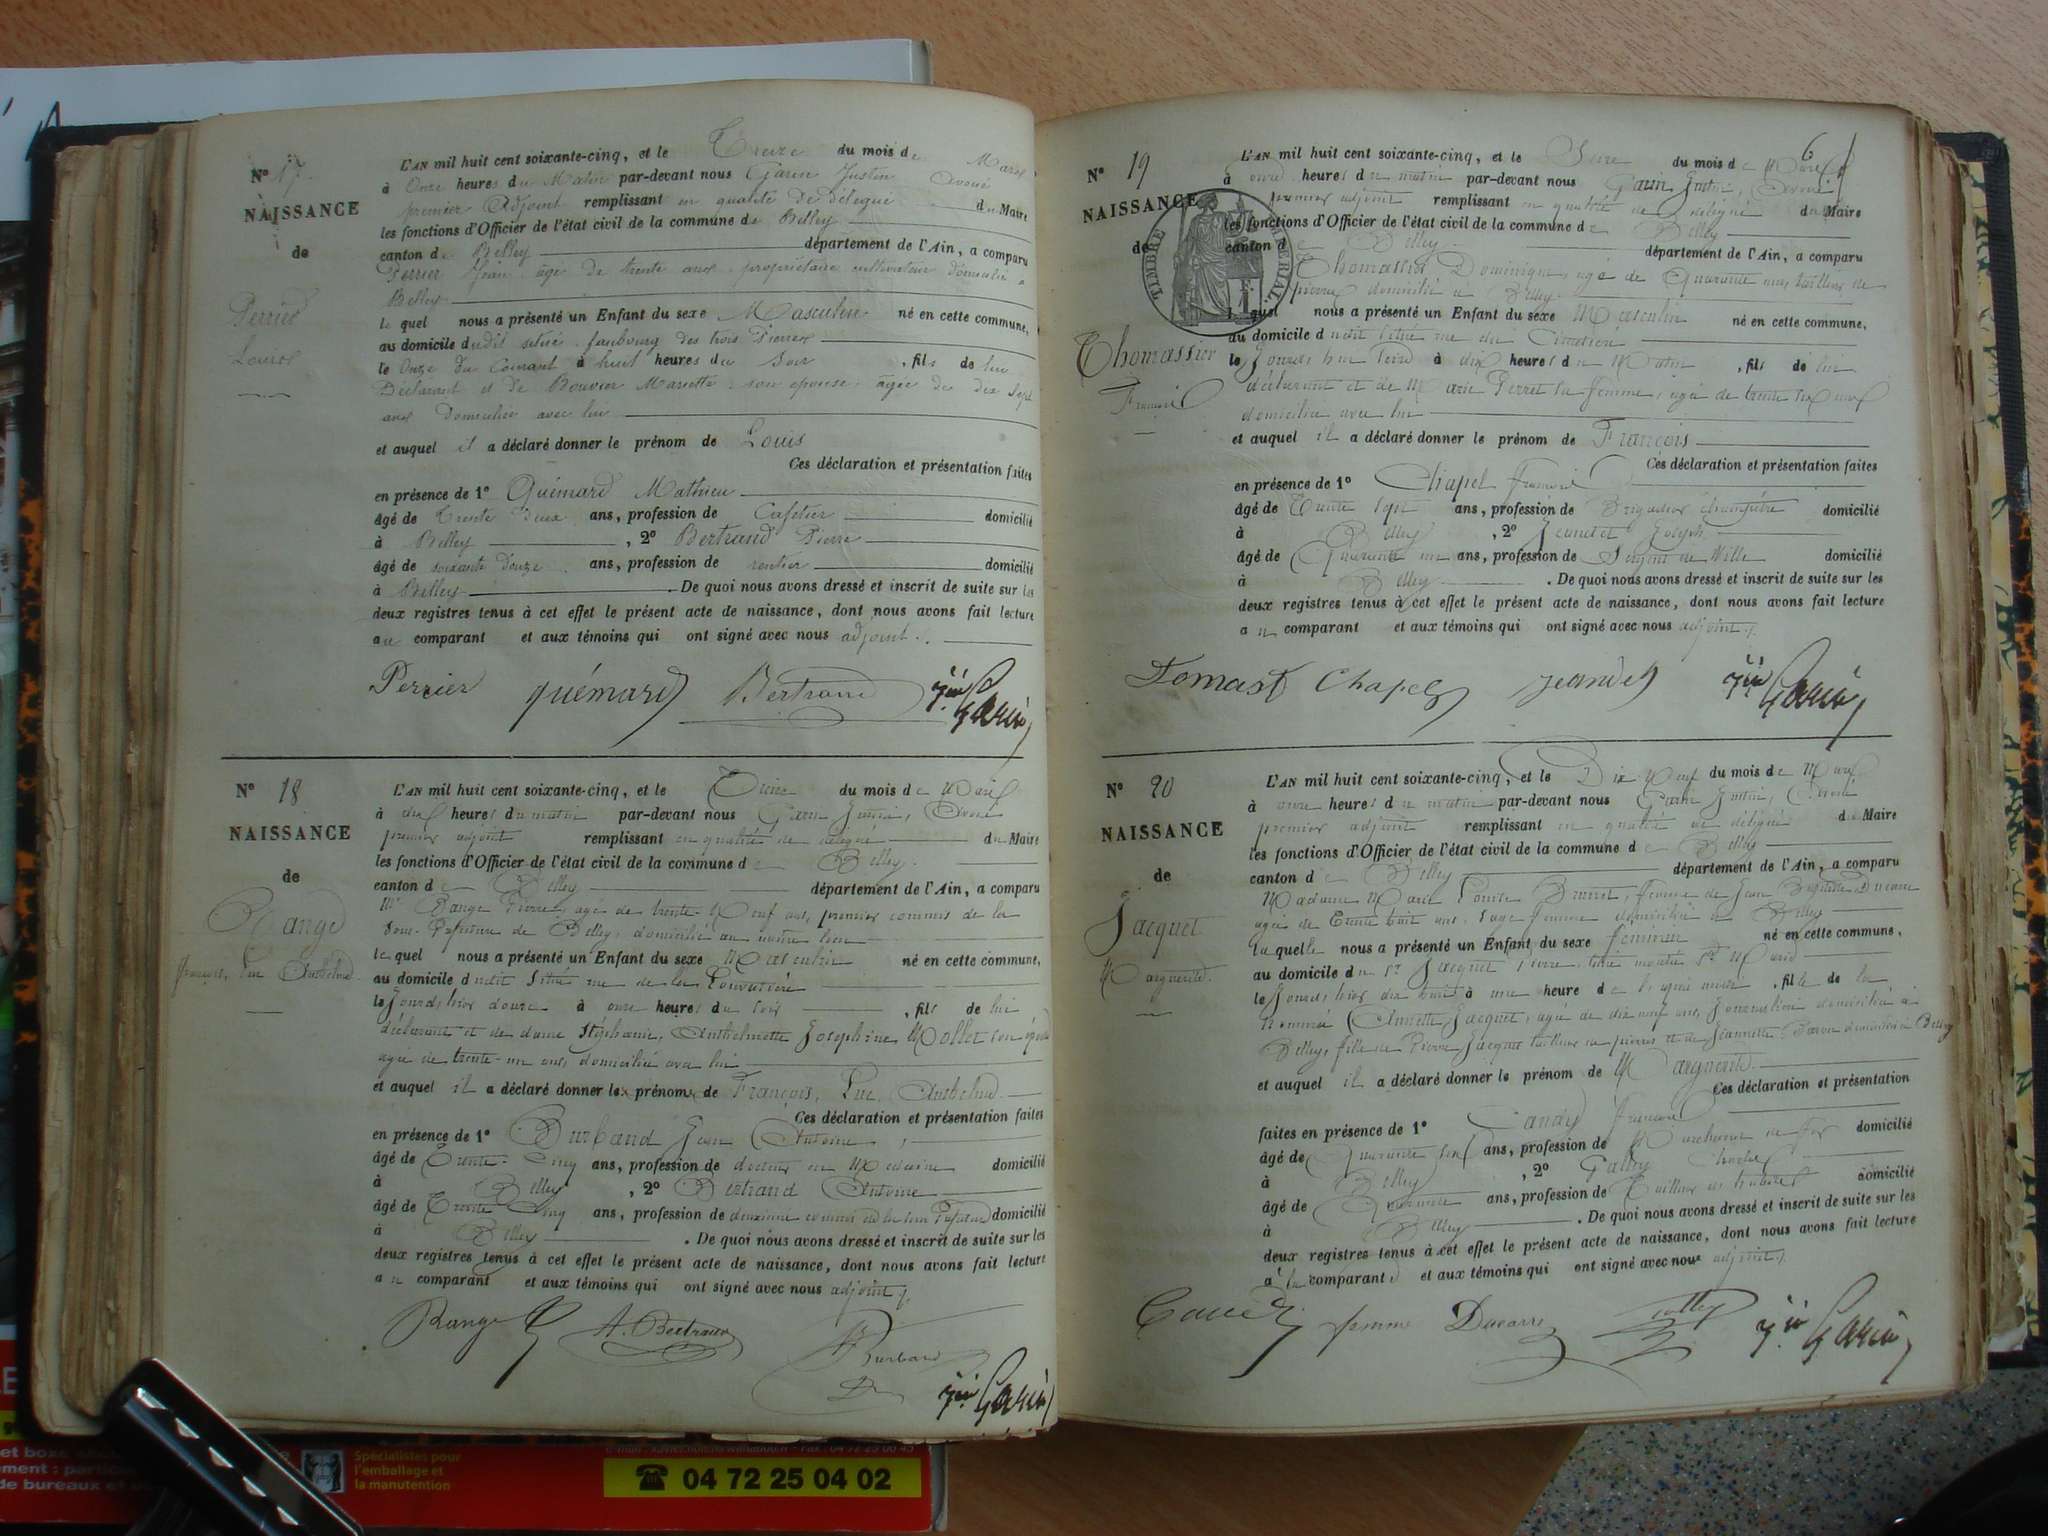 N° 17.
NAISSANCE
de
Perrier
Louis
L'AN mil huit cent soixante-cinq, et le Treize du mois de Mars
à Onze heures du Matin par-devant nous Garin Justin Avoué
premier Adjoint remplissant en qualité de délégué du Maire
les fonctions d'Officier de l'état civil de la commune de Belley
canton de Belley département de l'Ain, a comparu
Perrier Jean âgé de trente ans propriétaire cultivateur domicilié à
Belley
lequel nous a présenté un Enfant du sexe Masculin né en cette commune,
au domicile dudit situé faubourg des trois Pierres
le Onze du Courant à huit heures du Soir, fils de lui
Déclarant et de Bouvier Mariette son épouse âgée de dix Sept
ans Domiciliée avec lui
et auquel il a déclaré donner le prénom de Louis
Ces déclaration et présentation faites
en présence de 1° Quémard Mathieu
âgé de trente deux ans, profession de Cafetier domicilié
à Belley, 2° Bertrand Pierre
âgé de soixante Douze ans, profession de rentier domicilié
à Belley. De quoi nous avons dressé et inscrit de suite sur les
deux registres tenus à cet effet le présent acte de naissance, dont nous avons fait lecture
au comparant et aux témoins qui ont signé avec nous adjoint.
Perrier quémard Bertrand Jin Garin
N° 18
NAISSANCE
de
Range
François, Luc Anthelme
L'AN mil huit cent soixante-cinq, et le Treize du mois de Mars
à dix heures du matin par-devant nous Garin Justin, Avoué
premier adjoint remplissant en qualité de délégué du Maire
les fonctions d'Officier de l'état civil de la commune de Belley.
canton de Belley département de l'Ain, a comparu
Mr Range Pierre, âgé de trente-Neuf ans, premier commis de la
Sous-Préfecture de Belley, domicilié au même lieu
lequel nous a présenté un Enfant du sexe Masculin né en cette commune,
au domicile dudit Situé rue de la
le Jourd'hier douze à onze heures du soir, fils de lui
déclarant et de dame Stéphanie, Anthelmette Josephine Mollet son épouse
âgée de trente-un ans, domiciliée avec lui
et auquel il a déclaré donner les prénoms de François, Luc Anthelme.
Ces déclaration et présentation faites
en présence de 1° Burband Jean Antoine,
âgé de Trente-Cinq ans, profession de docteur en Médecine domicilié
à Belley, 2° Bertrand Antoine
âgé de Trente Cinq ans, profession de deuxième commis de la Sous Préfecture domicilié
à Belley. De quoi nous avons dressé et inscrit de suite sur les
deux registres tenus à cet effet le présent acte de naissance, dont nous avons fait lecture
au comparant et aux témoins qui ont signé avec nous adjoint
Range A. Bertrand Burband Jin Garin
6
N° 19
NAISSANCE
de
Thomassier
François
TIMBRE IMPÉRIAL
L'AN mil huit cent soixante-cinq, et le du mois de Mars
à onze heures du matin par-devant nous Garin Justin, Avoué
premier adjoint remplissant en qualité de délégué du Maire
les fonctions d'Officier de l'état civil de la commune de Belley
canton de Belley département de l'Ain, a comparu
Thomassier Dominique, âgé de Quarante ans, tailleur de
pierres domicilié à Belley
lequel nous a présenté un Enfant du sexe Masculin né en cette commune,
au domicile dudit Situé rue du Cimetière
le à dix heures du Matin, fils de lui
déclarant et de Marie Perret sa femme, âgée de trente ans
domiciliée avec lui
et auquel il a déclaré donner le prénom de François
Ces déclaration et présentation faites
en présence de 1° Chapel François
âgé de Trente Sept ans, profession de Brigadier Champêtre domicilié
à Belley, 2° Jeandet Joseph
âgé de Quarante un ans, profession de Sergent de Ville domicilié
à Belley. De quoi nous avons dressé et inscrit de suite sur les
deux registres tenus à cet effet le présent acte de naissance, dont nous avons fait lecture
au comparant et aux témoins qui ont signé avec nous adjoint
Tomast Chapel Jeandet Jin Garin
N° 20
NAISSANCE
de
Jacquet
Marguerite.
L'AN mil huit cent soixante-cinq, et le Dix Neuf du mois de Mars
à onze heures du matin par-devant nous Garin Justin, Avoué
premier adjoint remplissant en qualité de délégué du Maire
les fonctions d'Officier de l'état civil de la commune de Belley
canton de Belley département de l'Ain, a comparu
Madame Marie Louise femme de Jean Baptiste Ducarre
âgée de Trente huit ans, Sage femme domiciliée à Belley
laquelle nous a présenté un Enfant du sexe féminin né en cette commune,
au domicile du Sr Jacquet Pierre,
le Jourd'hier dix huit à une heure de, fille de la
Nommée Annette Jacquet, âgée de dix neuf ans, Journalière domiciliée à
Belley, fille de Pierre Jacquet tailleur de pierres et de Jeannette domiciliés à Belley
et auquel il a déclaré donner le prénom de Marguerite.
Ces déclaration et présentation
faites en présence de 1° François
âgé de Quarante ans, profession de Marchand de fer domicilié
à Belley, 2° Galley Charles
âgé de Quarante ans, profession de Tailleur d'habits domicilié
à Belley. De quoi nous avons dressé et inscrit de suite sur les
deux registres tenus à cet effet le présent acte de naissance, dont nous avons fait lecture
à la comparante et aux témoins qui ont signé avec nous adjoint
femme Ducarre Galley Jin Garin
Spécialistes pour
l'emballage et
la manutention
04 72 25 04 02
de bureaux et